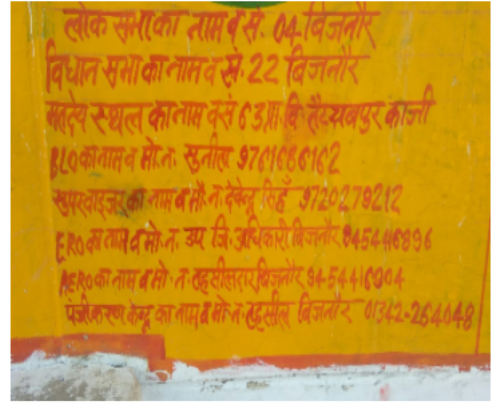 लोक सभा का नाम व सं. 04 बिजनौर
विधान सभा का नाम व सं. 22 बिजनौर
मतदेय स्थल का नाम व सं 63 प्रा. वि. तैय्यबपुर काजी
BLO का नाम व मो. न. सुनील 9761666162
सुपरवाइजर का नाम व मो. न. देवेन्द्र सिंह 9720279212
ERO का नाम व मो. न. उप जि. अधिकारी बिजनौर 9454416896
AERO का नाम व मो. न. तहसीलदार बिजनौर 9454416904
पंजीकरण केन्द्र का नाम व मो. न. तहसील बिजनौर 01342-264048